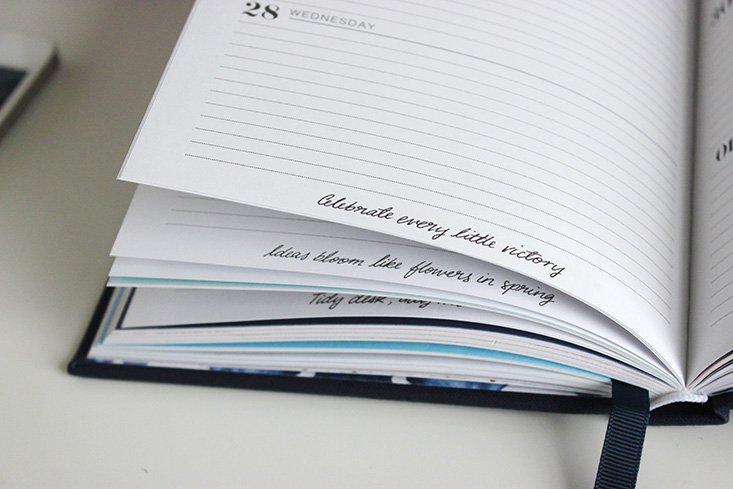 28 WEDNESDAY
Celebrate every little victory
Ideas bloom like flowers in spring
Tidy desk,